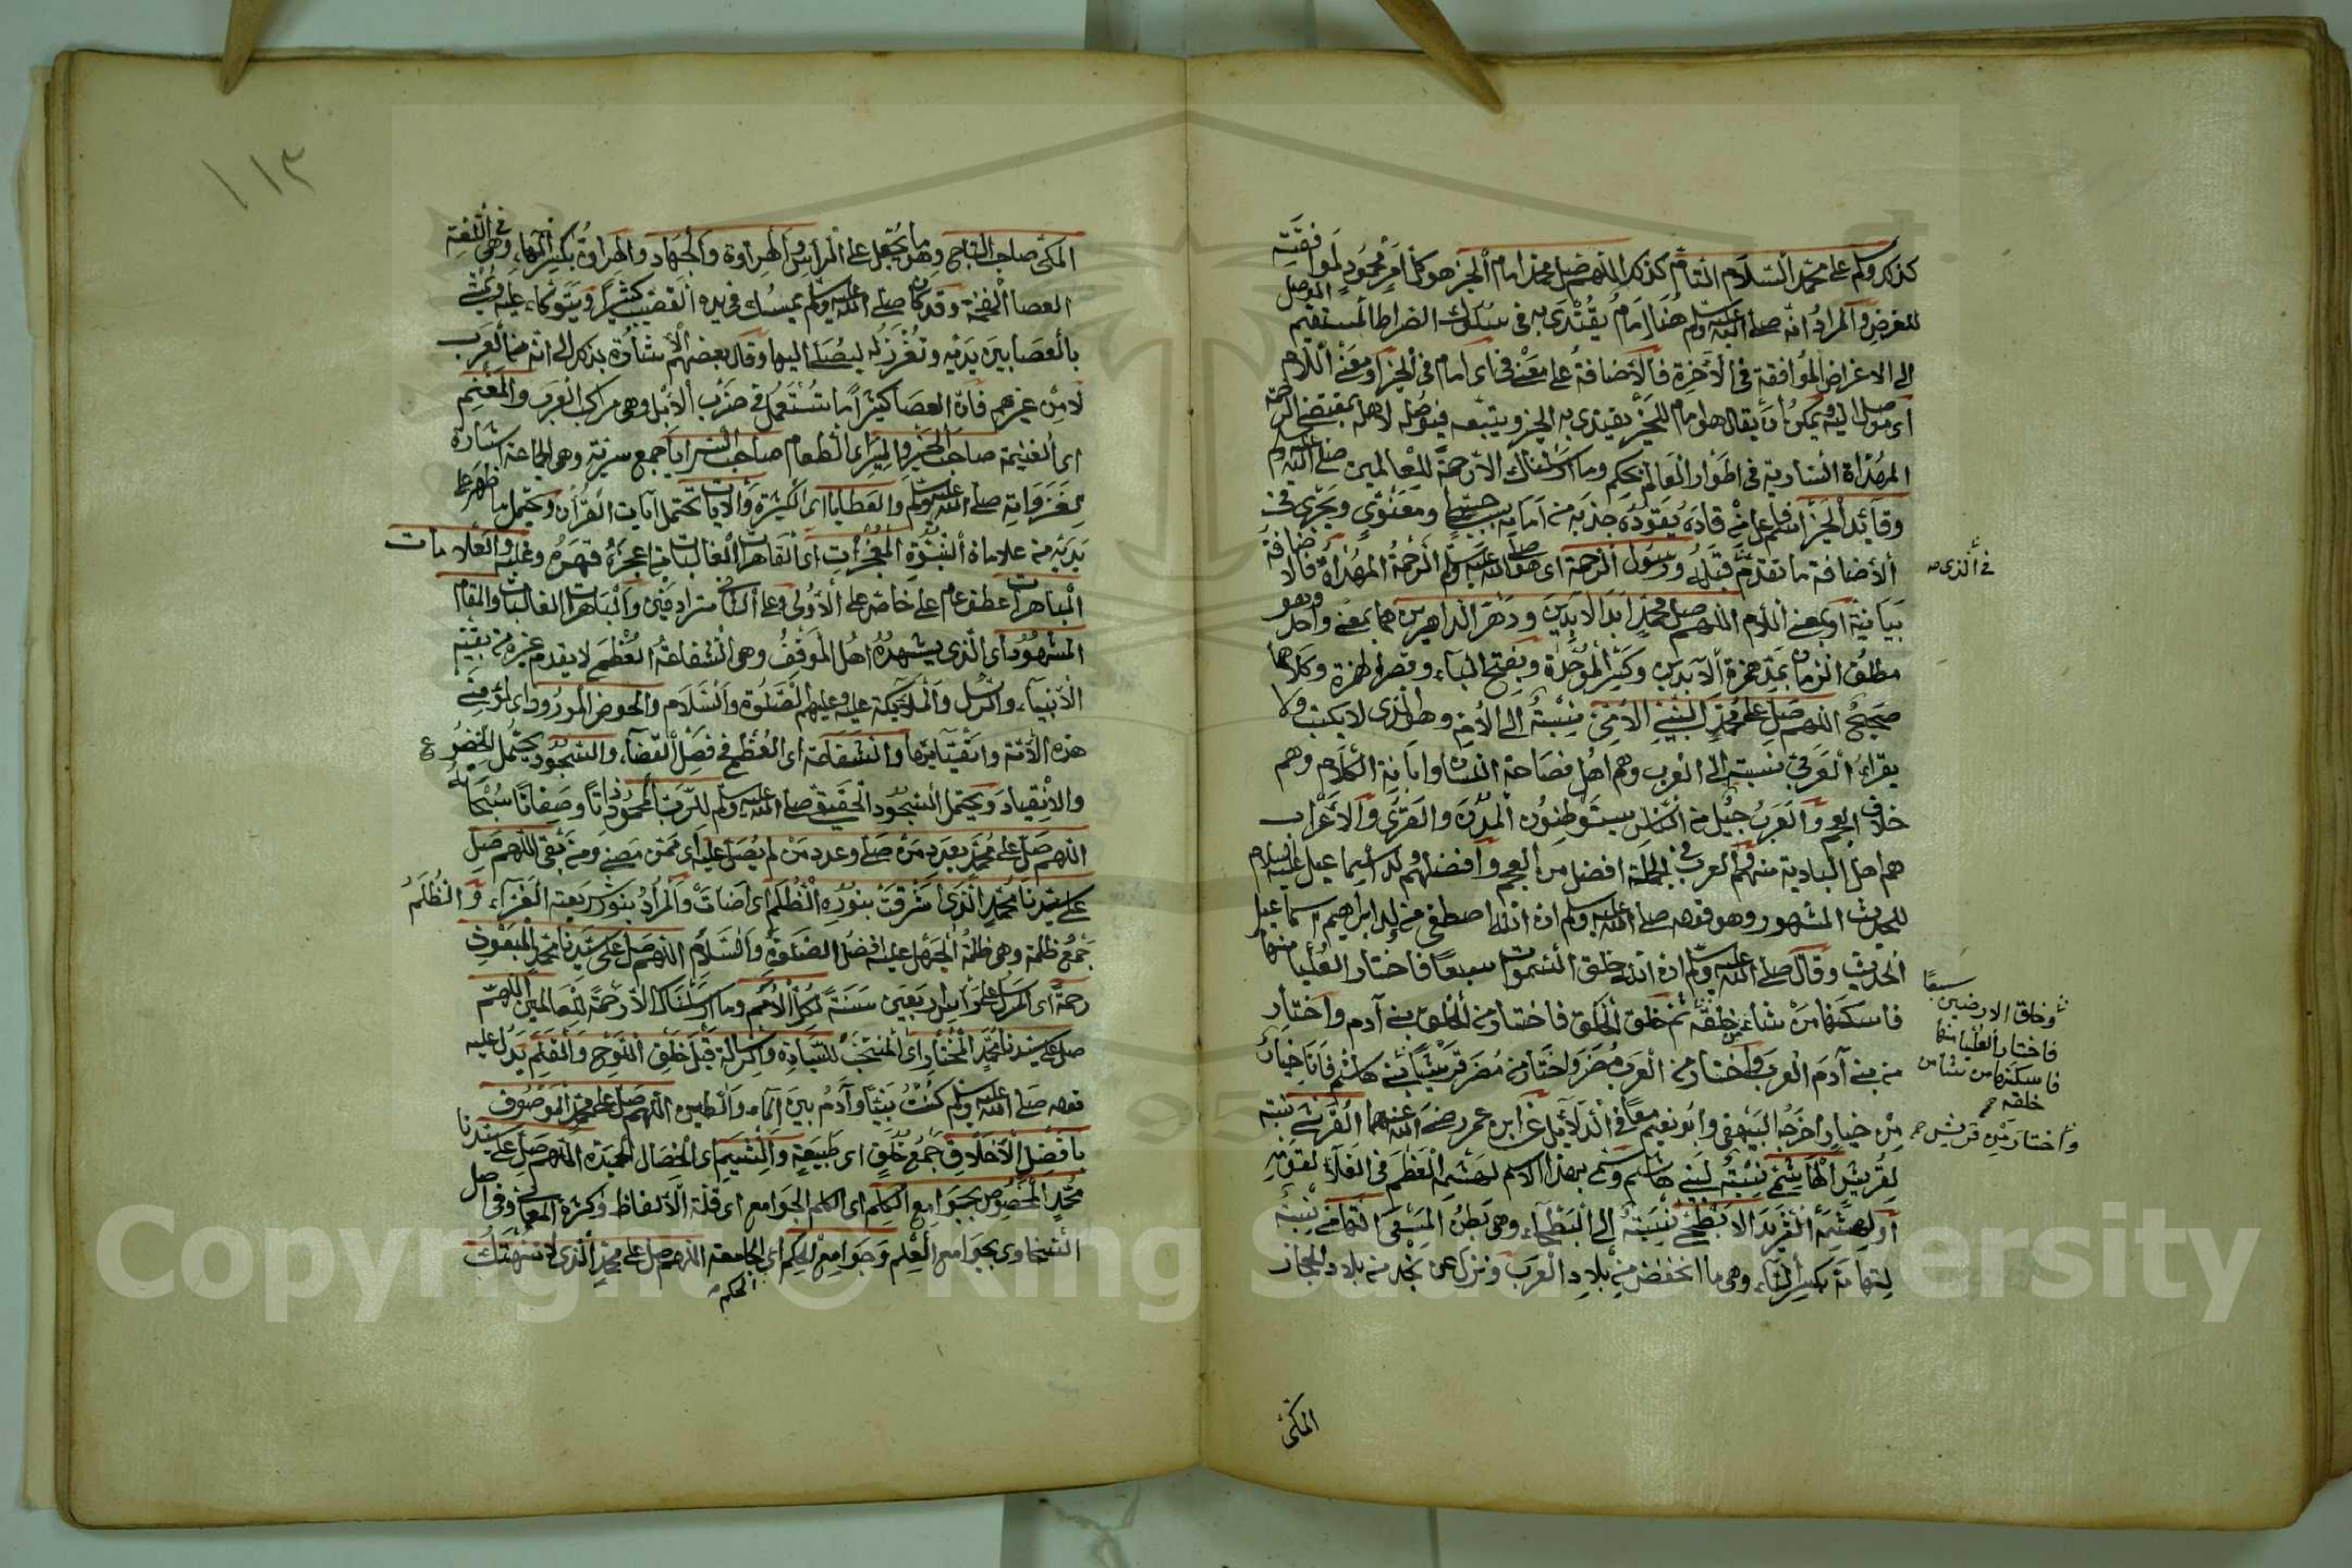 كذلك وسلم على محمد السلام التام كذلك اللهم صل محمد امام الخير هو كل امر محمود لموافقته
للغرض والمراد انه صلى الله عليه وسلم هنا امام يقتدى به في سلوك الصراط المستقيم الموصل
الى الاغراض الموافقة في الآخرة فالاضافة على معنى في اى امام في الخير او معنى اللام
اى موصل اليه ويمكن ان يقال هو امام للخير يقتدى به الخير ويتبعه فيوصله لاهله بمقتضى الرحمة
المهداة السارية في اطوار العالم بحكم وما ارسلناك الا رحمة للعالمين صلى الله عليه وسلم
وقائد الخير اسم فاعل من قاده يقوده جذبه من امامه بسبب حسى او معنوى ويجرى في
الاضافة ما تقدم قبله ورسول الرحمة اى هو صلى الله عليه وسلم الرحمة المهداة فالاضافة
بيانية او بمعنى اللام اللهم صل محمد ابد الآبدين ودهر الداهرين هما بمعنى واحد وهو
مطلق الزمان بمد همزة الآبدين وكسر الموحدة وبفتح الباء وقصر الهمزة وكلاهما
صحيح اللهم صل على محمد النبى الامى نسبة الى الام وهو الذى لا يكتب ولا
يقراء العربى نسبة الى العرب وهم اهل فصاحة اللسان وابانة الكلام وهم
خلاف العجم والعرب جيل من الناس يستوطنون المدن والقرى والاعراب
هم اهل البادية منهم والعرب في الجملة افضل من العجم وافضلهم ولد اسماعيل عليه السلام
للحديث المشهور وهو قوله صلى الله عليه وسلم ان الله اصطفى من ولد ابراهيم اسماعيل
الحديث وقال صلى الله عليه وسلم ان الله خلق السموات سبعا فاختار العليا منها
فاسكنها من شاء من خلقه ثم خلق الخلق فاختار من الخلق بنى آدم واختار
من بنى آدم العرب واختار من العرب مضر واختار من مضر قريشا بنى هاشم فانا خيار
من خيار اخرجه البيهقى وابو نعيم معا في الدلائل عن ابن عمر رضى الله عنهما القرشى نسبة
لقريش الهاشمى نسبة لبنى هاشم وسمى بهذا الاسم لهشمه العظم في الغلاء لقوته
او لهشمه الثريد الابطحى نسبة الى البطحاء وهى بطن المسعى التهامى نسبة
لتهامة بكسر التاء وهى ما انخفض من بلاد العرب ونزل عن نجد من بلاد الحجاز
في الذى صح
وخلق الارضين سبعا
فاختار العليا منها
فاسكنها من شاء من
خلقه صح
واختار من قريش صح
المكى
١١٣
المكى صاحب التاج وهو ما يجعل على الراس والهراوة والجهاد والهراوة بكسر الهاء وهى في اللغة
العصا الضخمة وقد كان صلى الله عليه وسلم يمسك في يده القضيب كثيرا ويتوكاء عليه ويمشى
بالعصا بين يديه وتغرز له ليصلى اليها وقال بعضهم الاشارة بذلك الى انه من العرب
لا من غيرهم فان العصا كثيرا ما تستعمل في ضرب الابل وهى مراكب العرب والمغنم
اى الغنيمة صاحب الخير والمير اى الطعام صاحب السرايا جمع سرية وهى الجماعة اشارة
لغزواته صلى الله عليه وسلم والعطايا اى الكثيرة والآيات تحتمل آيات القرأن ويحتمل ما ظهر على
يديه من علامات النبوة المعجزات اى القاهرات الغالبات من اعجزه قهره وغلبه والعلامات
الباهرات عطف عام على خاص على الاولى وعلى الثانى مترادفين والباهرات الغالبات والمقام
المشهود اى الذى يشهده اهل الموقف وهى الشفاعة العظمى لا يقدم غيره من بقية
الانبياء والرسل والملائكة عليه وعليهم الصلوة والسلام والحوض المورود اى لمؤمنى
هذه الامة واتقيائها والشفاعة اى العظمى في فصل القضاء والسجود يحتمل الخضوع
والانقياد ويحتمل السجود الحقيقى صلى الله عليه وسلم للرب المحمود ذاتا وصفاتا سبحانه
اللهم صل على محمد بعدد من صلى وعدد من لم يصل عليه اى ممن مضى ومن بقى اللهم صل
على سيدنا محمد الذى اشرقت بنوره الظلم اى اضات والمراد بنور شريعته الغراء والظلم
جمع ظلمة وهى ظلمة الجهل عليه افضل الصلوة والسلام اللهم صل على سيدنا محمد المبعوث
رحمة اى المرسل على راس اربعين سنة لكل الامم وما ارسلناك الا رحمة للعالمين اللهم
صل على سيدنا محمد المختار اى المنتخب للسيادة والرسالة قبل خلق اللوح والقلم يدل عليه
قوله صلى الله عليه وسلم كنت نبيا وآدم بين الماء والطين اللهم صل على محمد الموصوف
بافضل الاخلاق جمع خلق اى طبيعة والشيم اى الخصال الحميدة اللهم صل على سيدنا
محمد المخصوص بجوامع الكلم اى الكلم الجوامع اى قلة الالفاظ وكثرة المعانى وفى اصل
السخاوى بجوامع العلم وجوامع الحكم اى الجامعة اللهم صل على محمد الذى لا تنتهك
الحكم صح
Copyright © King Saud University